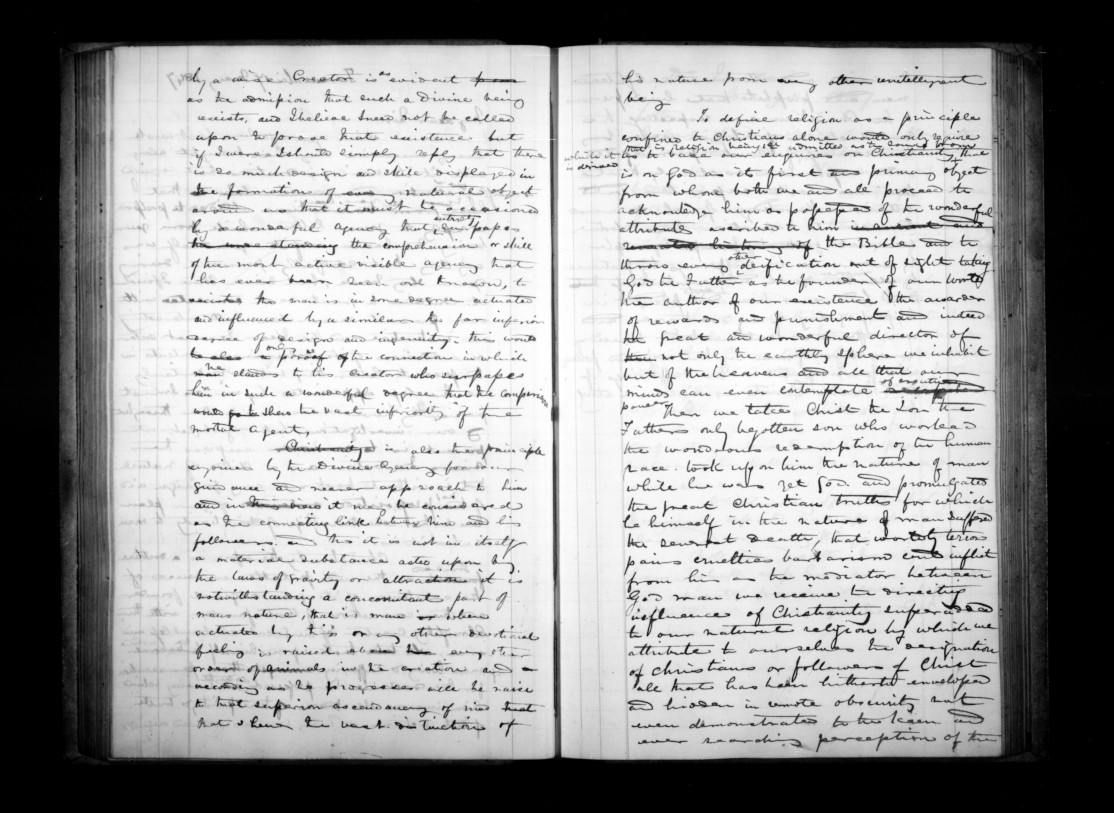 by a wise Creator is as evident
as the admission that such a Divine being
exists, and I believe I need not be called
upon to prove that existence but
if I were I should simply reply that there
is so much design and skill displayed in
the formations of every natural object
around us that it must be occasioned
by a wonderful agency that entirely surpasses
the comprehension or skill
of the most active visible agency that
has ever been seen or known, to
the man is in some degree actuated
and influenced by a similar tho far inferior
degree of design and ingenuity. this would
be also a proof of the connection in which
man stands to his creator who surpasses
him in such a wonderful degree that the comparison
would shew the vast inferiority of the
mortal agent,
Christianity is also the principle
enjoined by the Divine Agency for our
guidance and nearer approach to him
and in this view it may be considered
as the connecting link between him and his
followers. and tho it is not in itself
a material substance acted upon by
the laws of gravity or attraction it is
notwithstanding a concomitant part of
mans nature, that is man when
actuated by this or any other devotional
feeling is raised above any other
order of animals in the creation and
according as he progresses will he raise
to that superior ascendancy of mind
that shews the vast distinction of
his nature from any other unintelligent
being
To define religion as a principle
confined to Christians alone would only require
that is religion being 1st admitted as the source from
which it is derived
us to base our enquiries on Christianity that
is on God as it first and primary object
from whom both we and all proceed to
acknowledge him as possessed of the wonderful
attributes ascribed to him
the Bible and to
throw every other deification out of sight taking
God the Father as the founder of our world
the author of our existence the awarder
of rewards and punishment and indeed
the great and wonderful director of
not only the earthly sphere we inhabit
but of the heavens and all that our
minds can even contemplate of creative
power
Then we take Christ the Son the
Fathers only begotten son who worked
the wonderous redemption of the human
race. took upon him the nature of man
while he was yet God. and promulgated
the great Christian truths for which
he himself in the nature of man suffered
the severest death, that worldly
pains cruelties barbarism could inflict
from him as the mediator between
God man we receive the directing
influence of Christianity superadded
to our natural religion by which we
attribute to ourselves the designation
of Christians or followers of Christ
all that has been hitherto enveloped
and hidden in remote obscurity not
even demonstrated to the keen and
ever searching perception of the